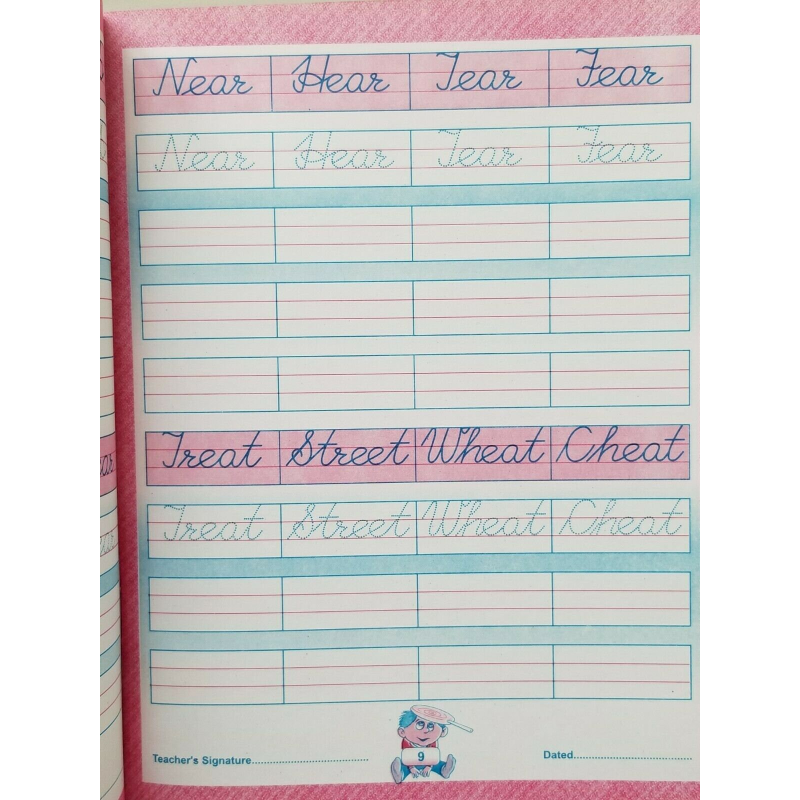 Near Hear Tear Fear
Near Hear Tear Fear
Treat Street Wheat Cheat
Treat Street Wheat Cheat
9
Teacher's Signature.................................... Dated....................................